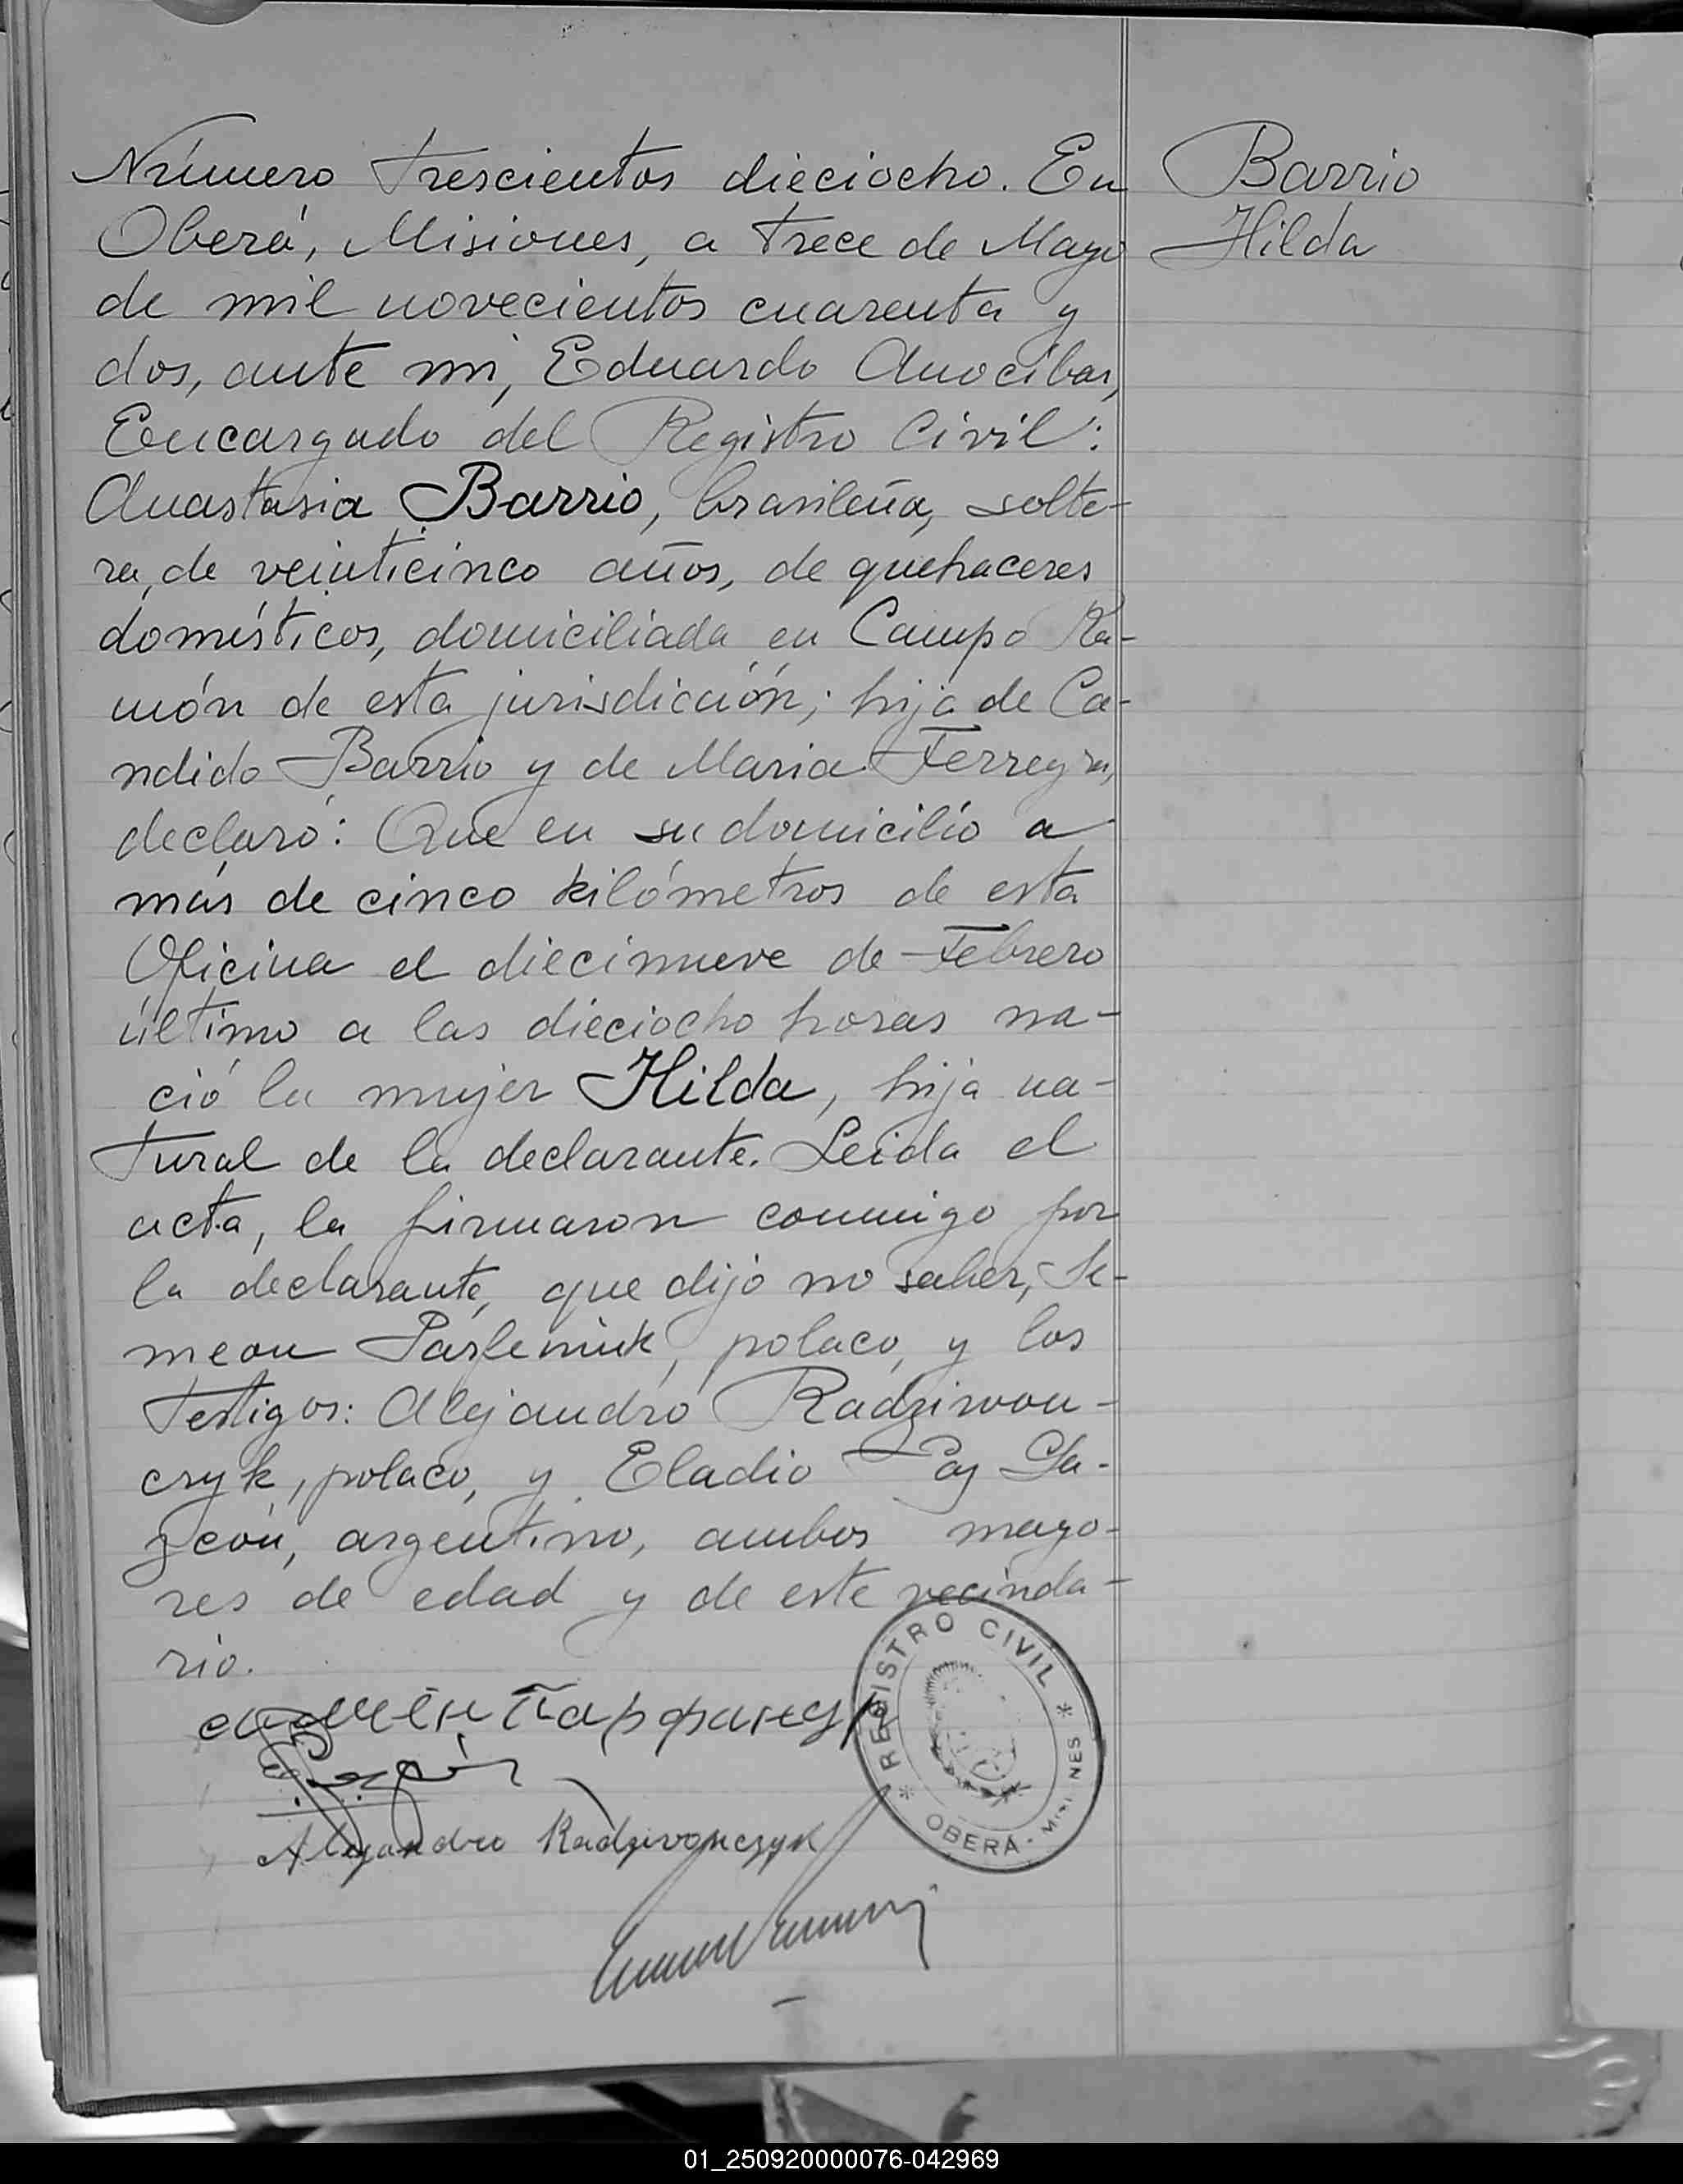 Número trescientos dieciocho. En
Oberá, Misiones, a trece de Mayo
de mil novecientos cuarenta y
dos, ante mi, Eduardo Anocibar,
Encargado del Registro Civil:
Anastasia Barrio, brasileña, solte-
ra, de veinticinco años, de quehaceres
domésticos, domiciliada en Campo Ra-
món de esta jurisdicción; hija de Ca-
ndido Barrio y de Maria Ferreyra,
declaró: Que en su domicilio a
más de cinco kilómetros de esta
Oficina el diecinueve de Febrero
último a las dieciocho horas na-
ció la mujer Hilda, hija na-
tural de la declarante. Leida el
acta, la firmaron conmigo por
la declarante, que dijo no saber, Se-
meon Parfeniuk, polaco, y los
testigos: Alejandro Radziwon-
czyk, polaco, y Eladio Paz Ga-
zcón, argentino, ambos mayo-
res de edad y de este vecinda-
rio.
Alejandro Radzivonczyk
Barrio
Hilda
* REGISTRO CIVIL *
OBERÁ - MISIONES
01_250920000076-042969